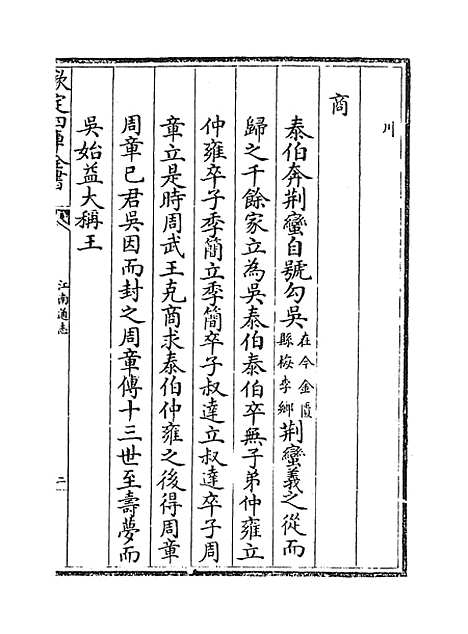 川
商
泰伯奔荆蠻自號勾吳在今金匱縣梅李鄉荆蠻義之從而
歸之千餘家立為吳泰伯泰伯卒無子弟仲雍立
仲雍卒子季簡立季簡卒子叔達立叔達卒子周
章立是時周武王克商求泰伯仲雍之後得周章
周章已君吳因而封之周章傳十三世至壽夢而
吳始益大稱王
欽定四庫全書
江南通志
二